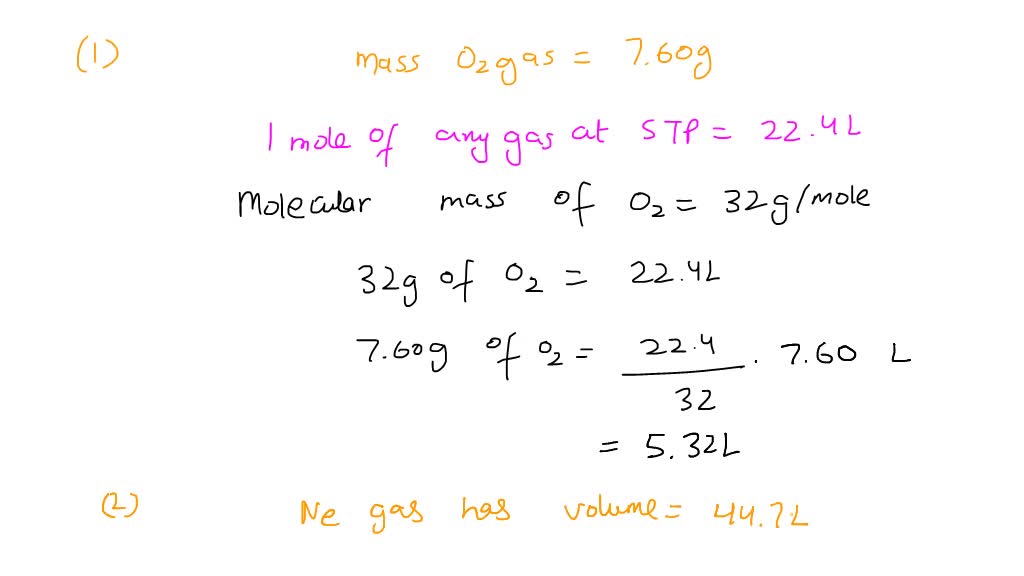 (1) mass O₂ gas = 7.60g
1 mole of any gas at STP = 22.4L
Molecular mass of O₂ = 32g/mole
32g of O₂ = 22.4L
7.60g of O₂ = 22.4/32 . 7.60 L
= 5.32L
(2) Ne gas has volume = 44.7L